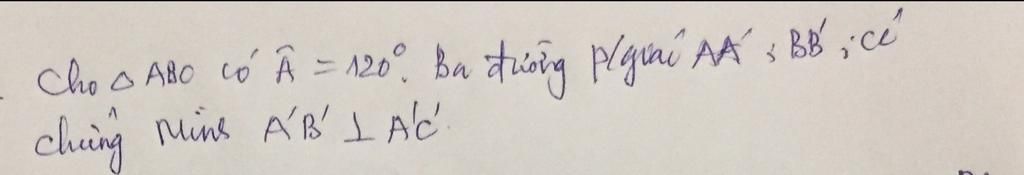 Cho △ ABC có Â = 120°. Ba đường p/giác AA' ; BB' ; CC'
chứng minh A'B' ⊥ A'C'.